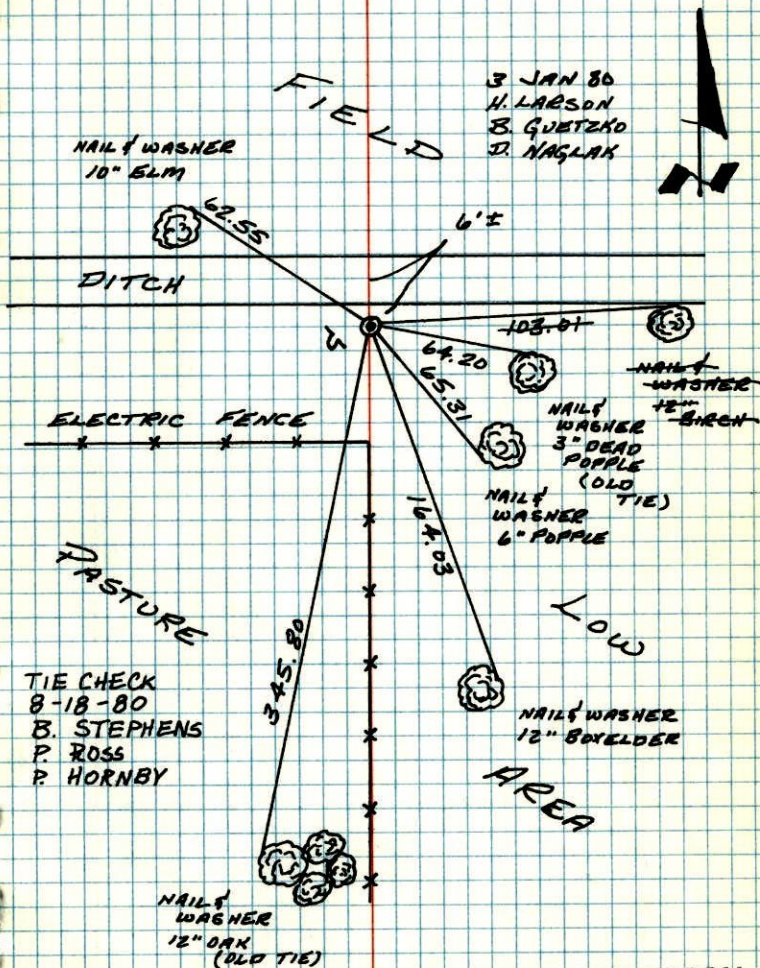 FIELD
3 JAN 80
H. LARSON
B. GUETZKO
D. NAGLAK
NAIL & WASHER
10" ELM
62.55
6'±
DITCH
103.01
64.20
65.31
NAIL &
WASHER
12"
BIRCH
ELECTRIC FENCE
NAIL &
WASHER
3" DEAD
POPPLE
(OLD
TIE)
NAIL &
WASHER
6" POPPLE
164.03
PASTURE
LOW
345.80
TIE CHECK
8-18-80
B. STEPHENS
P. ROSS
P. HORNBY
NAIL & WASHER
12" BOXELDER
AREA
NAIL &
WASHER
12" OAK
(OLD TIE)